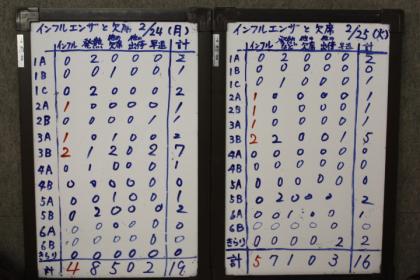 インフルエンザと欠席 2/24(月)
インフル 発熱 他の欠席 他の出停 早退 計
1A 0 2 0 0 0 2
1B 0 1 0 0 0 1
1C 0 2 0 0 0 2
2A 1 0 0 0 0 1
2B 0 0 1 0 0 1
3A 1 0 1 0 0 2
3B 2 1 2 0 2 7
4A 0 1 0 0 0 1
4B 0 0 0 0 0 0
5A 0 0 1 0 0 1
5B 0 2 0 0 0 2
6A 0 0 0 0 0 0
6B 0 0 0 0 0 0
きらり 0 0 0 0 0 0
計 4 8 5 0 2 19
インフルエンザと欠席 2/25(火)
インフル 他の欠席 早退 計
1A 0 0 0 0 2
1B 0 0 0 0
1C 0 0 0
2A 1 0 0 0
2B 1 0 0 0 0 1
3A 1 0 0 0 0 1
3B 2 2 0 0 1 5
4A 0 0 0 0 0 0
4B 0 0 0 0 0 0
5A 0 0 0 0 0 0
5B 0 2 0 0 0 2
6A 0 0 1 0 0 1
6B 0 0 0 0 0
きらり 0 0 0 0 2 2
計 5 7 1 0 3 16